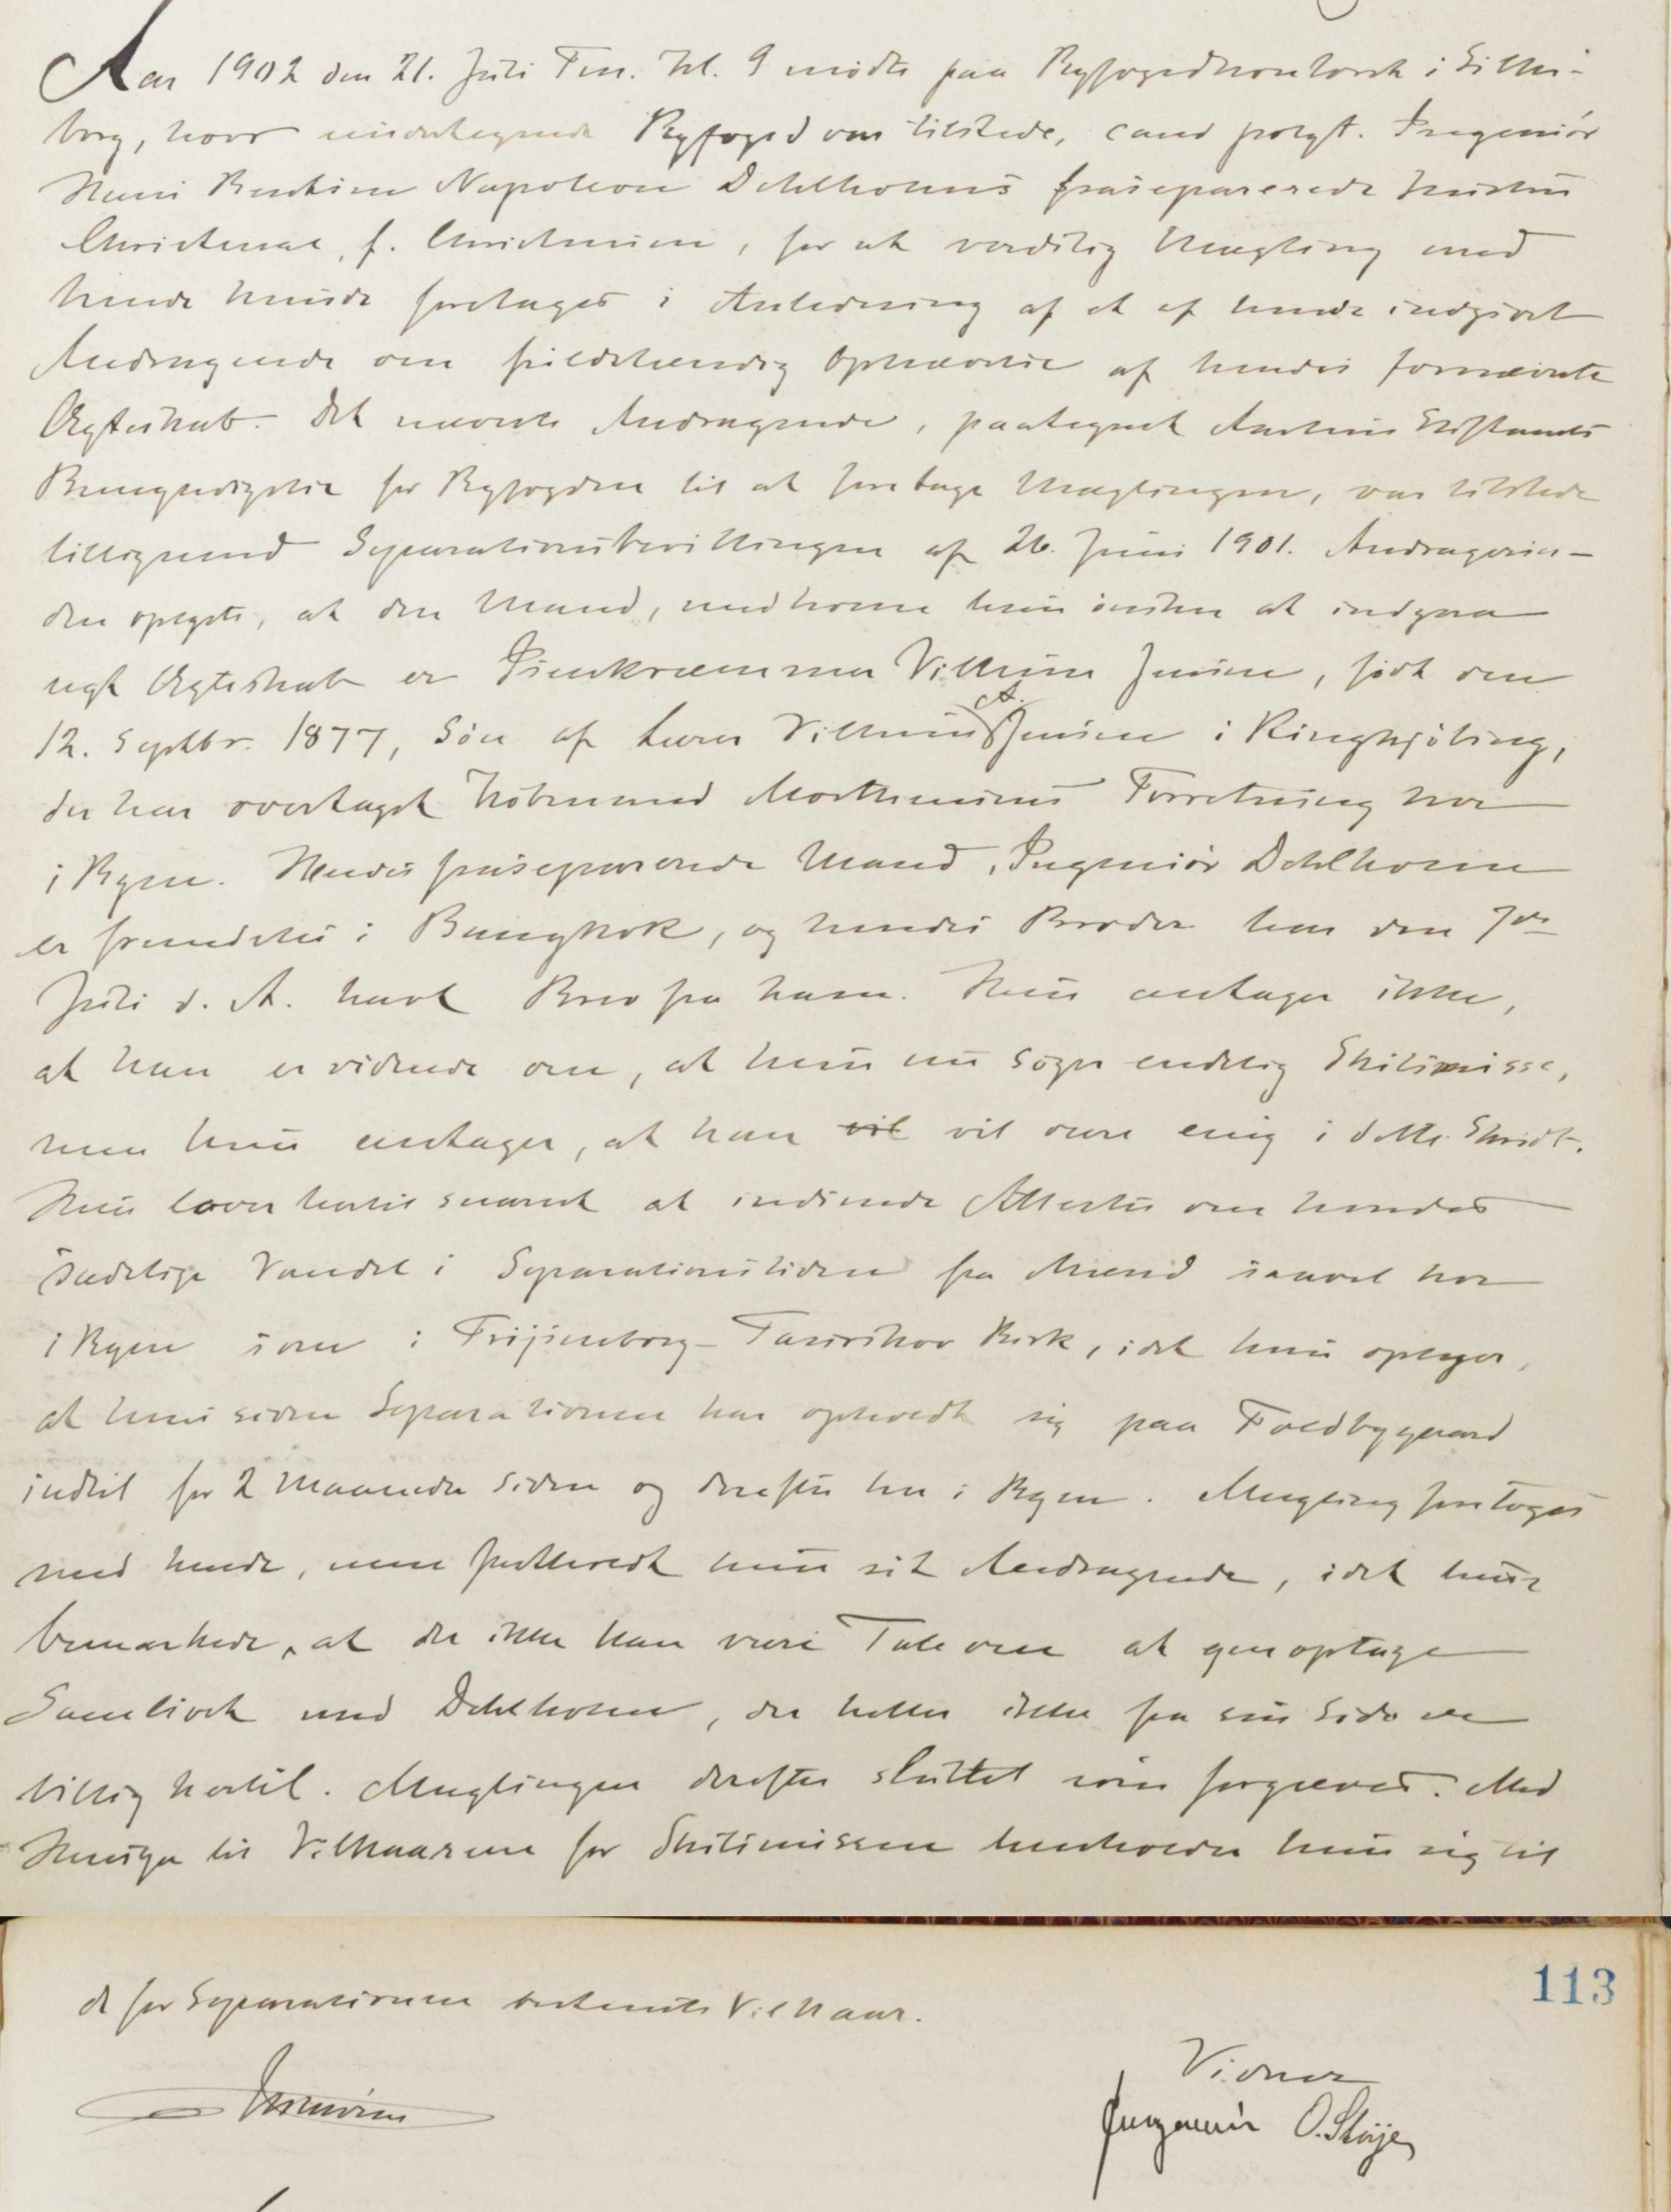 Aar 1902 den 21. Juli Fm. Kl. 9 mødte paa Byfogedkontoret i Silke-
borg, hvor undertegnede Byfoged var tilstede, cand polyt. Ingeniør
Hans Napoleon Dehlholms fraseparerede Hustru
Christense, f. Christensen, for at verdslig Mægling med
hende kunde foretages i Anledning af et af hende indgivet
Andragende om fuldstændig Ophævelse af hendes fornævnte
Ægteskab. Det nævnte Andragende, paategnet Aarhus Stiftamts
Bemyndigelse for Byfogden til at foretage Mæglingen, var tilstede
tilligemed Separationsbevillingen af 26. Juni 1901. Andragerin-
den oplyste, at den Mand, med hvem hun ønsker at indgaa
nyt Ægteskab er Isenkræmmer Vilhelm Jensen, født den
12. Septbr. 1877, Søn af Lærer Vilhelm A. Jensen i Ringkjøbing,
der har overtaget Købmand Mortensens Forretning her
i Byen. Hendes fraseparerede Mand, Ingeniør Dehlholm
er fremdeles i Bangkok, og hendes Broder har den 7de
Juli d. A. havt Brev fra ham. Hun antager ikke,
at han er vidende om, at hun nu søger endelig Skilsmisse,
men hun antager, at han vil vil være enig i dette Skridt.
Hun lover hertil snarest at indsende Attester om hendes
sædelige Vandel i Separationstiden fra Mænd saavel her
i Byen som i Frijsenborg-Faurskov Birk, idet hun oplyser,
at hun siden Separationen har opholdt sig paa Foldbygaard
indtil for 2 Maaneder siden og derefter her i Byen. Mægling foretoges
med hende, men fastholdt hun sit Andragende, idet hun
bemærkede, at der ikke kan være Tale om at genoptage
Samlivet med Dehlholm, der heller ikke fra sin Side er
villig hertil. Mæglingen derefter sluttet som forgæves. Med
Hensyn til Vilkaarene for Skilsmissen henholder hun sig til
de for Separationen bestemte Vilkaar.
113
Vidner
Jungersen O. Skøije